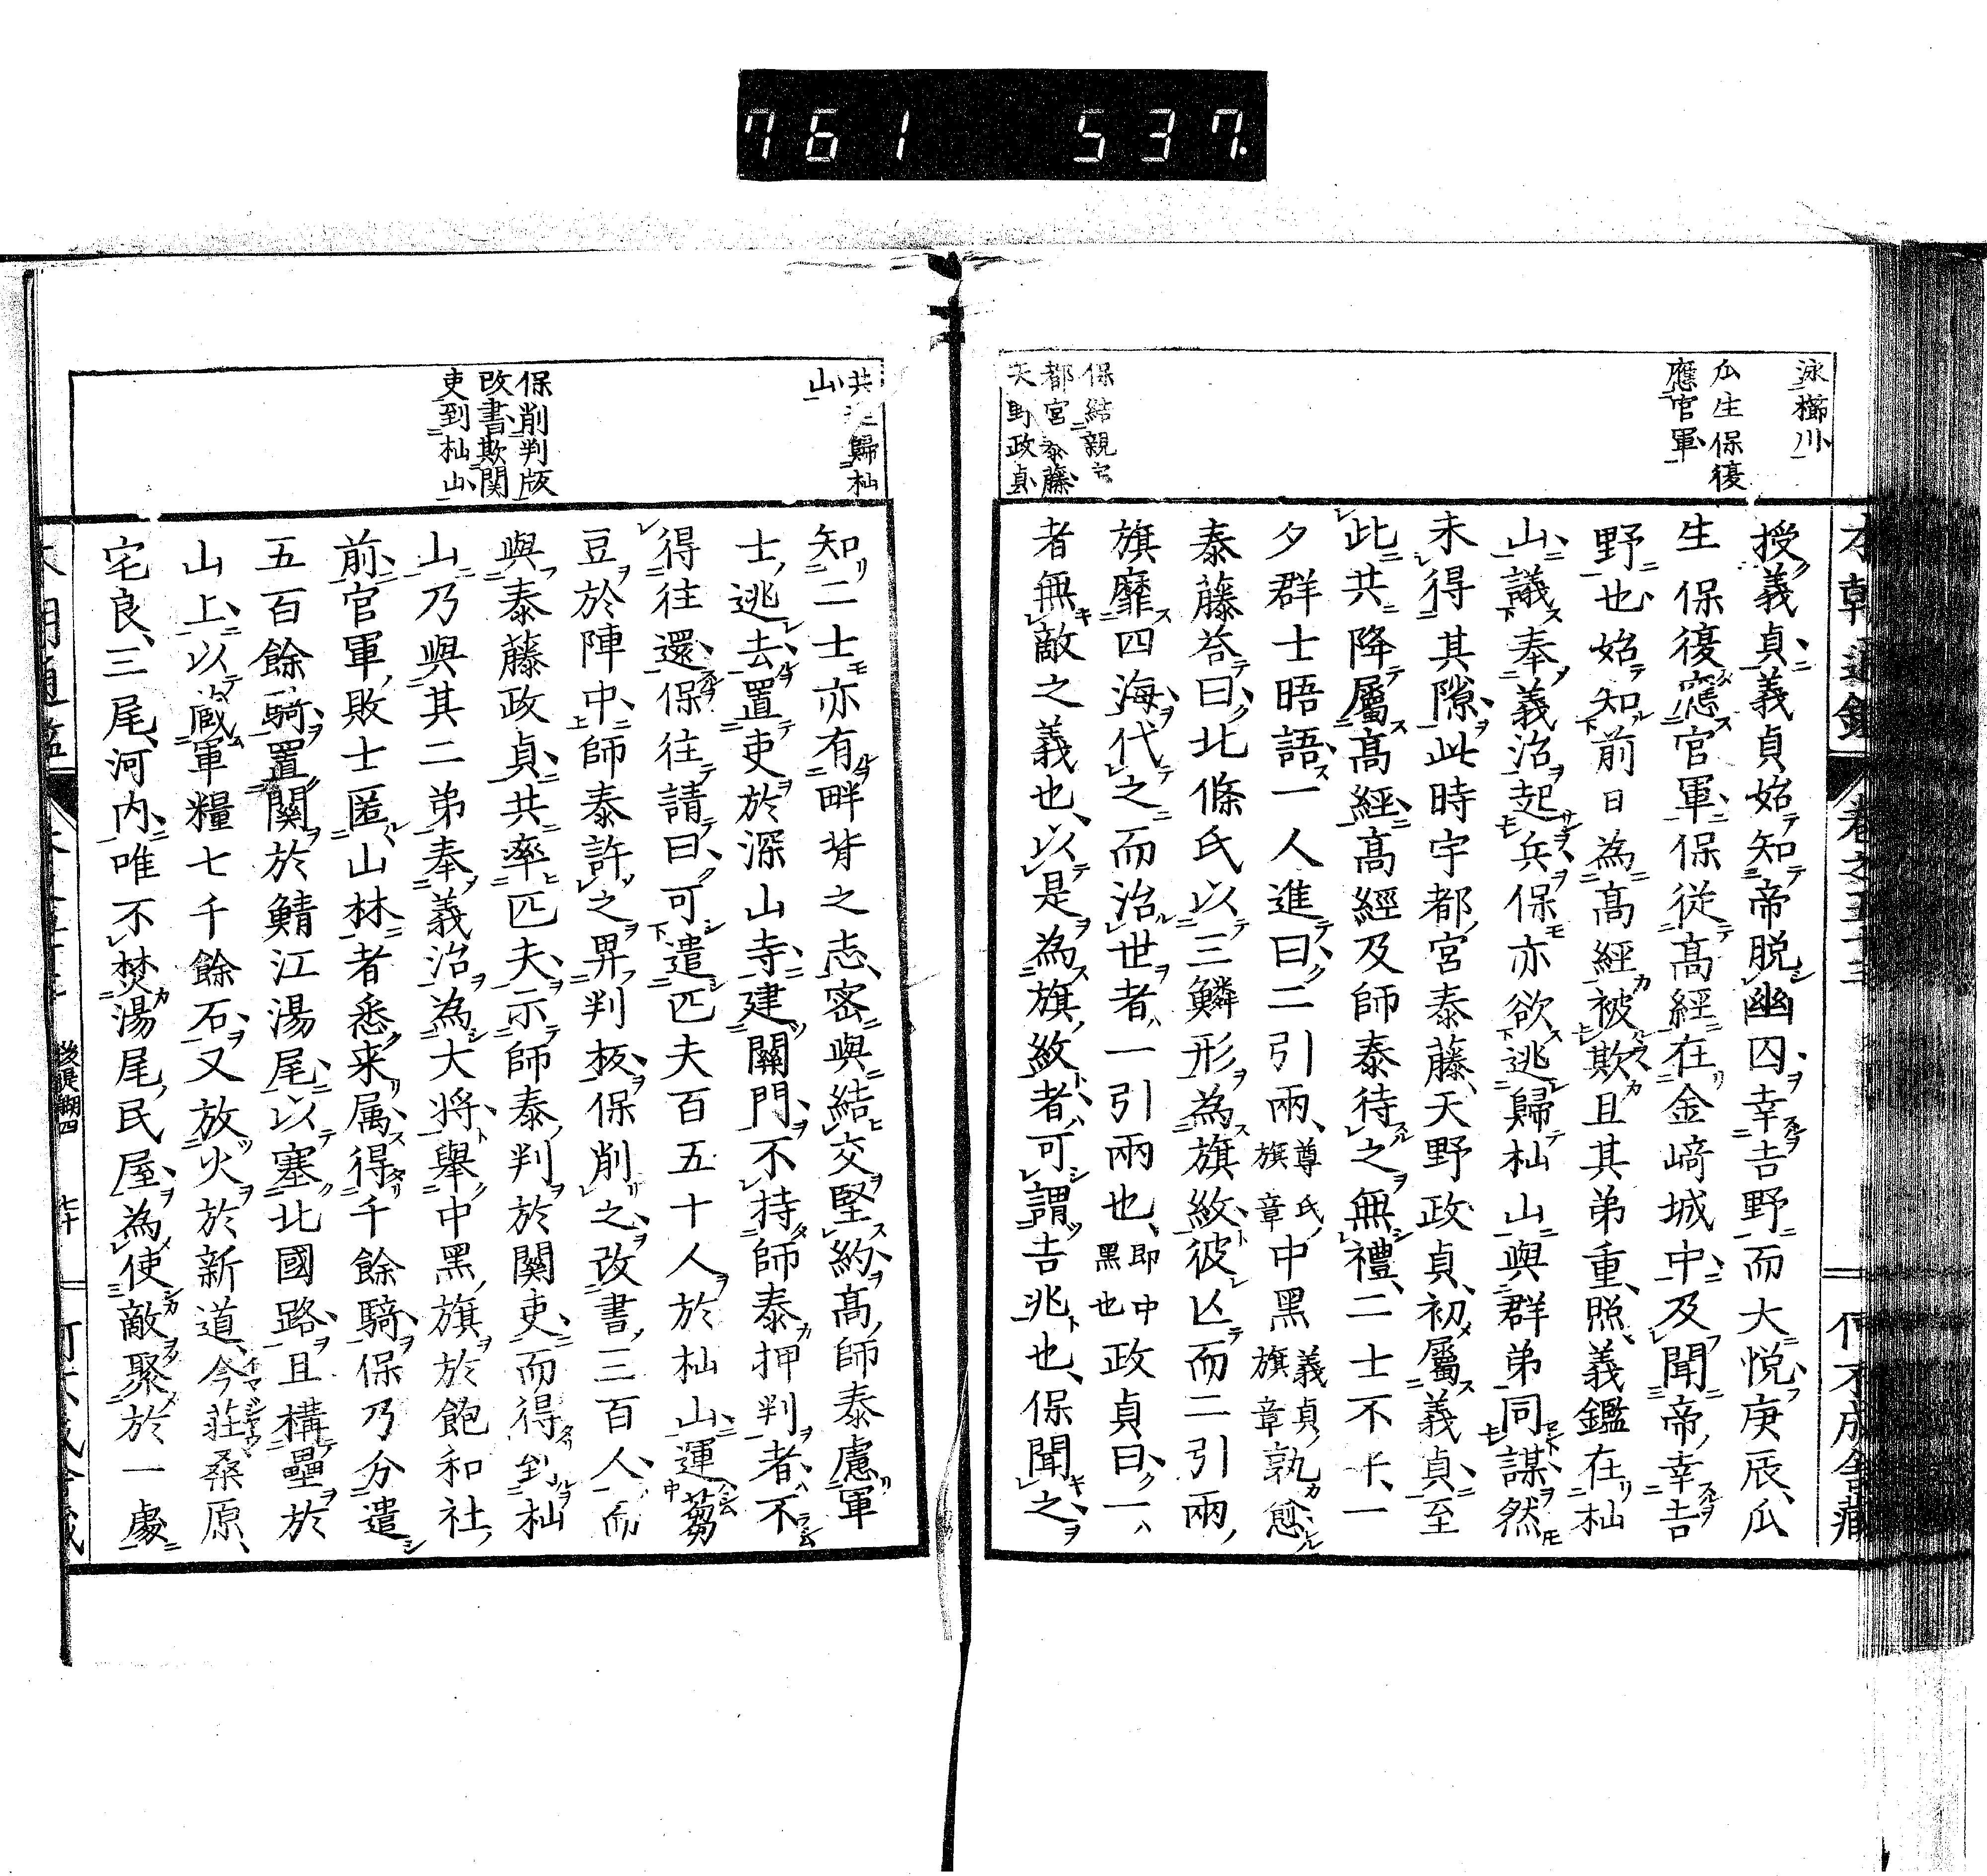 761 537.
泳櫛川
瓜生保復
應官軍
保結親
都宮泰藤
天野政貞
授義貞義貞始知帝脱幽囚幸吉野而大悦庚辰瓜
生保復應官軍保従高經在金﨑城中及聞帝幸吉
野也始知前日為高經被欺且其弟重照義鑑在杣
山議奉義治起兵保亦欲逃歸杣山與群弟同謀然
未得其隙此時宇都宮泰藤天野政貞初屬義貞至
此共降屬高經高經及師泰待之無禮二士不平一
夕群士晤語一人進曰二引兩尊氏旗章中黑義貞旗章孰愈
泰藤荅曰北條氏以三鱗形為旗紋彼亡而二引兩
旗靡四海代之而治世者一引兩也即中黑也政貞曰一
者無敵之義也以是為旗紋者可謂吉兆也保聞之
共歸杣
山
保削判版
改書欺関
吏到杣山
知二士亦有畔背之志密與結交堅約高師泰慮軍
士逃去置吏於深山寺建關門不持師泰押判者不
得往還保往請曰可遣匹夫百五十人於杣山運蒭
豆於陣中師泰許之畀判板保削之改書三百人而
與泰藤政貞共率匹夫示師泰判於関吏而得到杣
山乃與其二弟奉義治為大将舉中黑旗於飽和社
前官軍敗士匿山林者悉来属得千餘騎保乃分遣
五百餘騎置関於鯖江湯尾以塞北國路且構壘於
山上以蔵軍糧七千餘石又放火於新道今莊桑原
宅良三尾河内唯不焚湯尾民屋為使敵聚於一處
後醍醐四